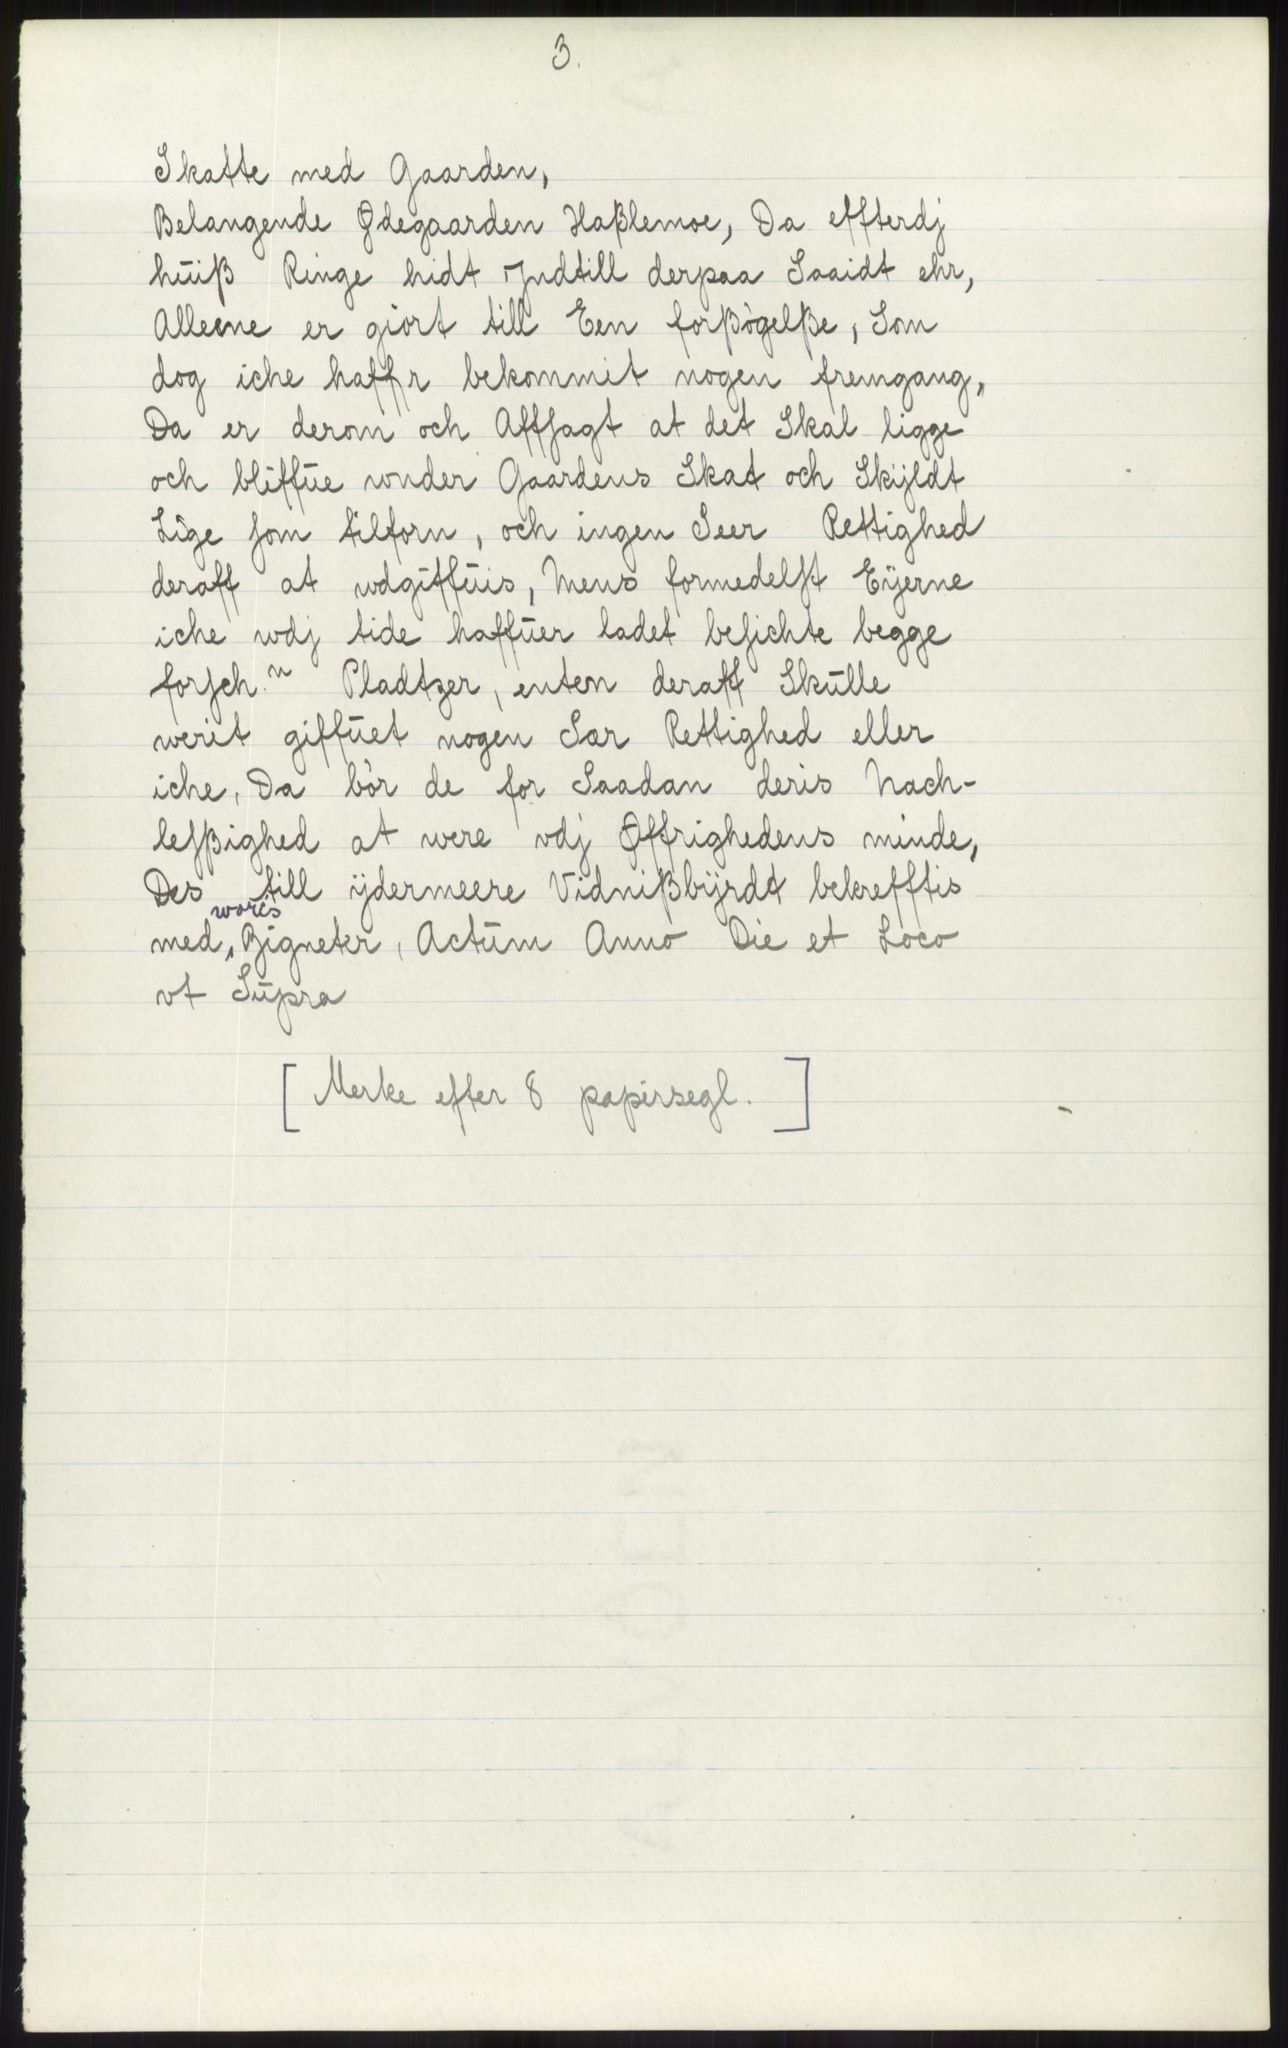 3.
Skatte med Gaarden,
Belangende Ødegaarden Haßlemoe, Da effterdj
huiß Ringe hidt Jndtill derpaa Saaidt ehr,
Alleene er giort till Een forßøgelße, Som
dog iche haffr bekommit nogen fremgang,
Da er derom och Affsagt at det Skal ligge
och bliffue wnder Gaardens Skat och Skÿldt
Lige som tilforn, och ingen Seer Rettighed
deraff at wdgiffuis, Mens formedelst Eÿerne
iche wdj tide haffuer ladet besichte begge
forsch.n Pladtzer, enten deraff Skulle
werit giffuet nogen Sær Rettighed eller
iche, Da bør de for Saadan deris Nach-
lesßighed at were vdj Øffrighedens minde,
Des till ÿdermeere Vidnißbÿrdt bekrefftis
med woris Zigneter, Actum Anno Die et Loco
vt Supra
[Merke efter 8 papirsegl.]